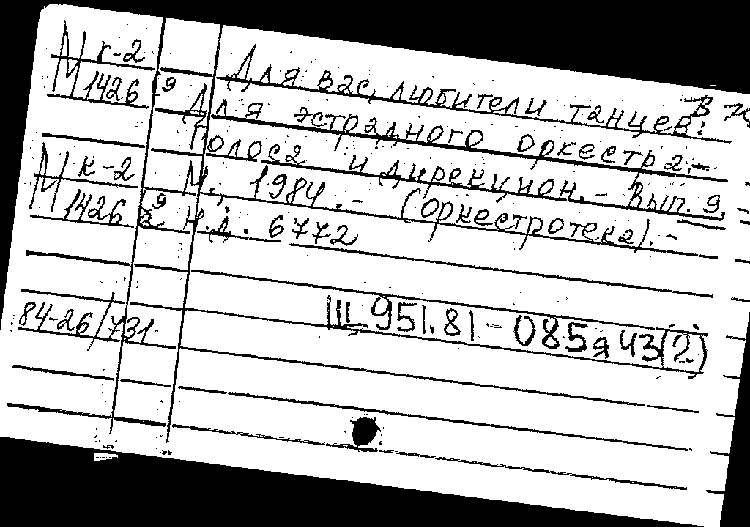 М к-2
1426 9
Для вас, любители танцев:
Для эстрадного оркестра.-
Голоса и дирекцион.- Вып. 9.
М., 1984.- (Оркестротека).-
Н.д. 6772
В 75
М к-2
1426 9
84-26/731
Щ 951.81-085я43(2)